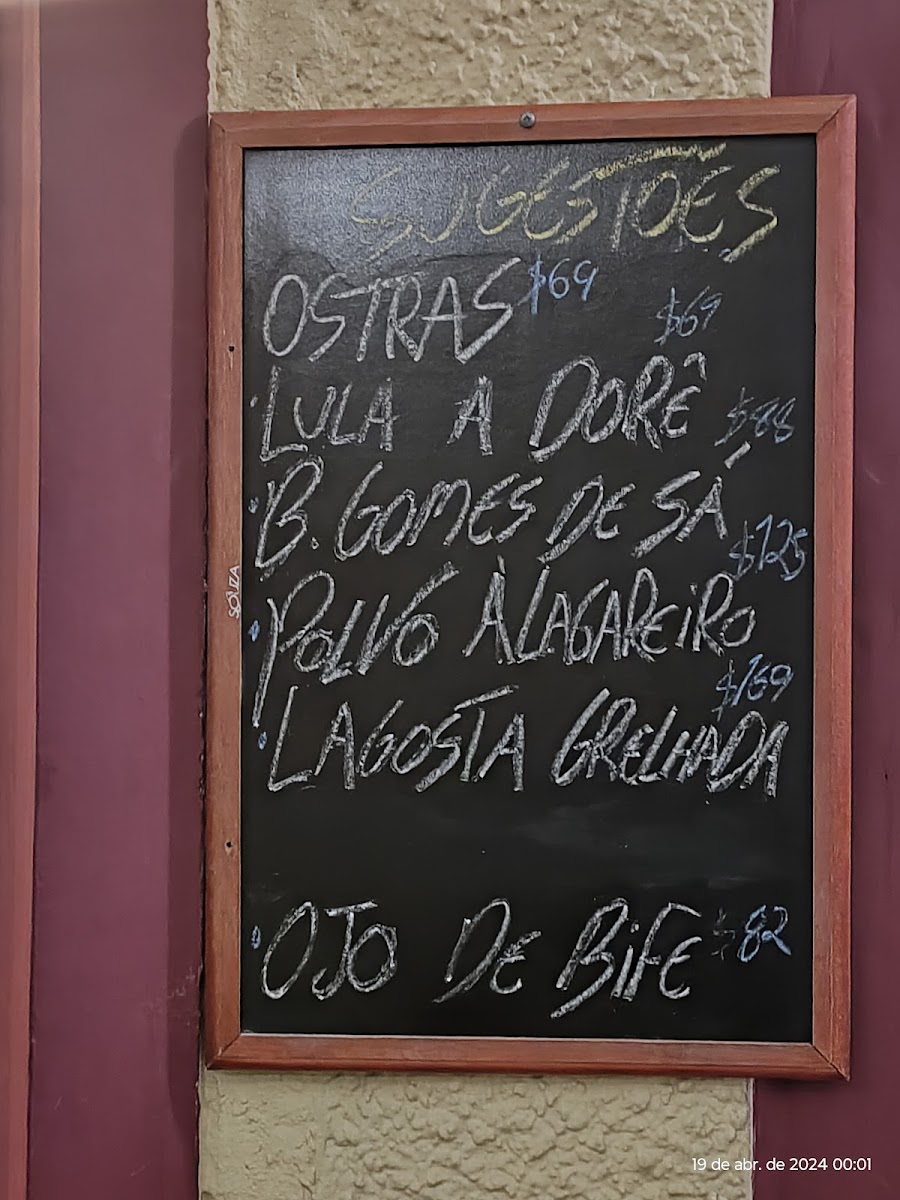 SUGESTÕES
OSTRAS $69
$69
LULA A DORÊ
$88
B. GOMES DE SÁ
$125
POLVO À LAGAREIRO
$169
LAGOSTA GRELHADA
OJO DE BIFE $82
SOUZA
19 de abr. de 2024 00:01